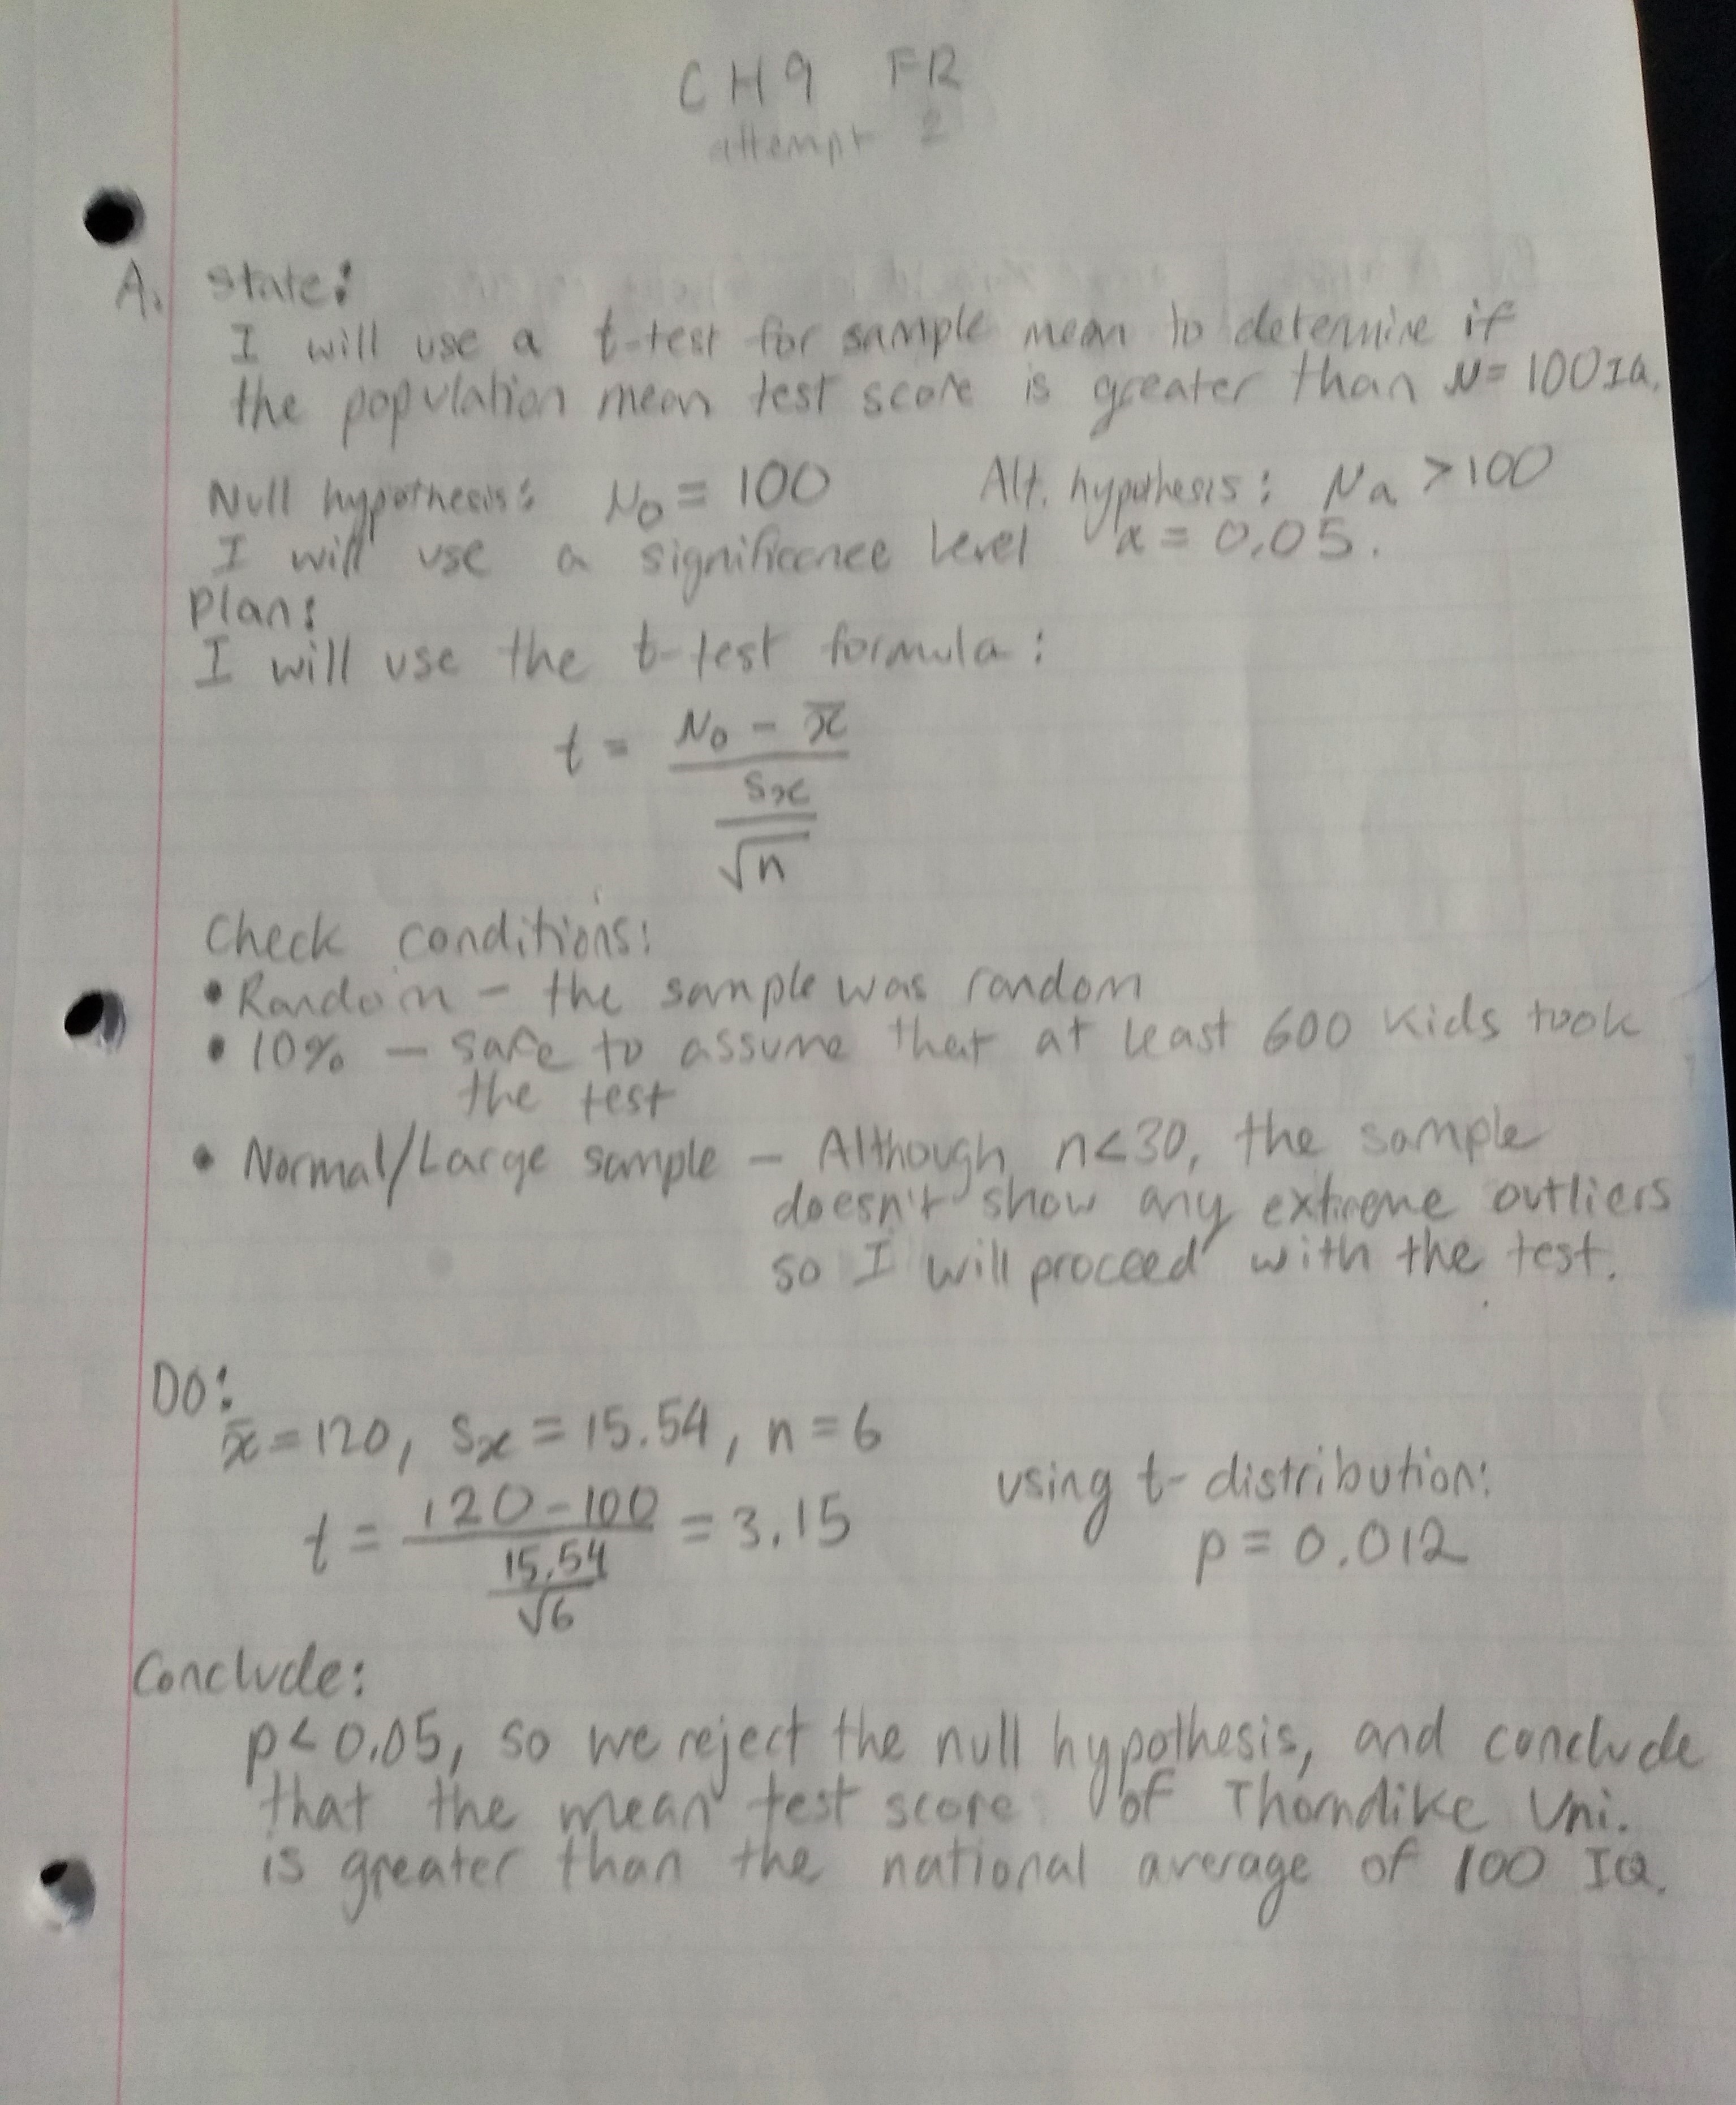 CH9 FR
attempt 2
A. state:
I will use a t-test for sample mean to determine if
the population mean test score is greater than μ = 100 IQ.
Null hypothesis: μ₀ = 100 Alt. hypothesis: μₐ > 100
I will use a significence level α = 0.05.
Plan:
I will use the t-test formula:
t = (μ₀ - x̄) / (sₓ / √n)
Check conditions:
• Random - the sample was random
• 10% - safe to assume that at least 600 kids took
the test
• Normal/Large sample - Although n<30, the sample
doesn't show any extreme outliers
so I will proceed with the test.
DO:
x̄ = 120, sₓ = 15.54, n = 6
t = (120 - 100) / (15.54 / √6) = 3.15
using t-distribution:
p = 0.012
Conclude:
p < 0.05, so we reject the null hypothesis, and conclude
that the mean test score of Thorndike Uni.
is greater than the national average of 100 IQ.